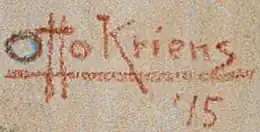 Otto Kriens
'15